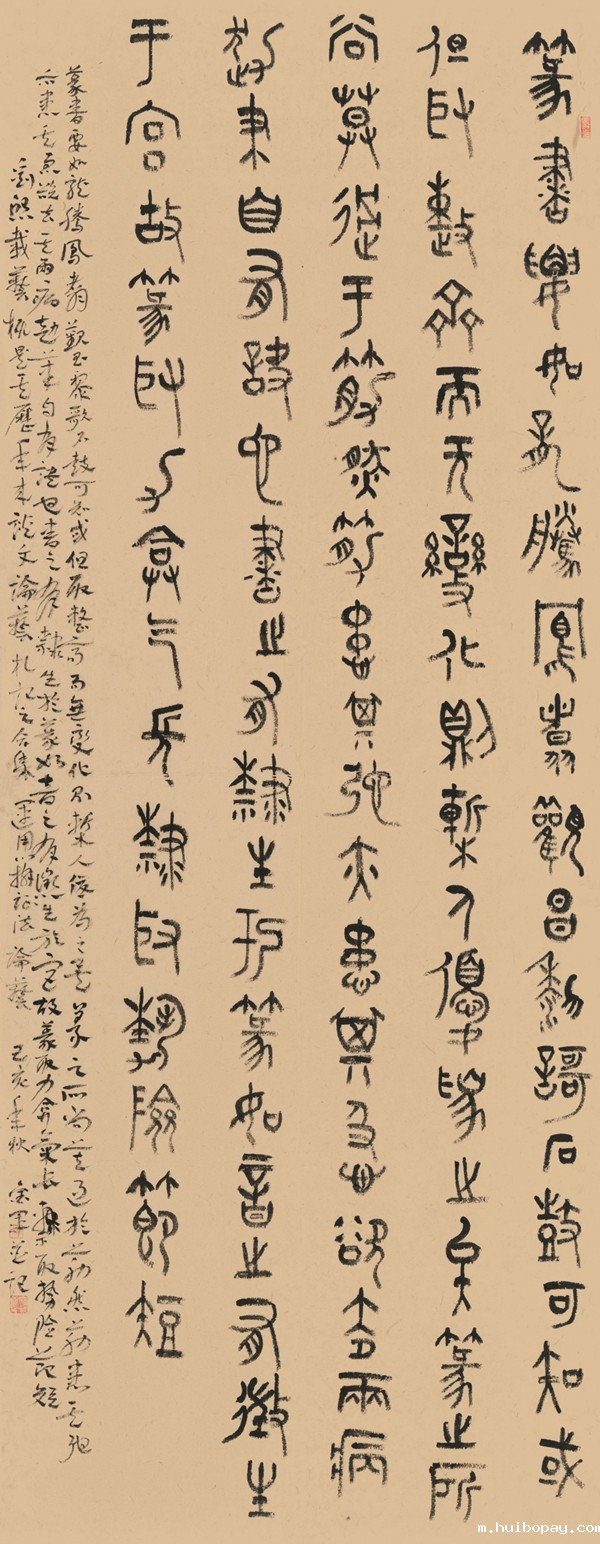 篆書要如龍騰鳳翥觀昌黎歌石鼓可知或
但取整齊而无變化則槧人優爲之矣篆之所
尚莫過于筋然筋患其弛亦患其急欲去兩病
趯筆自有訣也書之有隸生於篆如音之有徵生
于宮故篆取力弇气長隸取勢險節短
篆書要如龍騰鳳翥觀昌黎歌石鼓可知或但取整齊而無變化則槧人優為之矣篆之所尚莫過於筋然筋患其弛
亦患其急欲去其兩病趯筆自有訣也書之有隸生於篆如音之有徵生於宮故篆取力弇氣長隸取勢險節短
劉熙載藝概是其歷年來談文論藝札記之合集運用辯證法論藝 己亥年秋 並記
m.huibopay.com